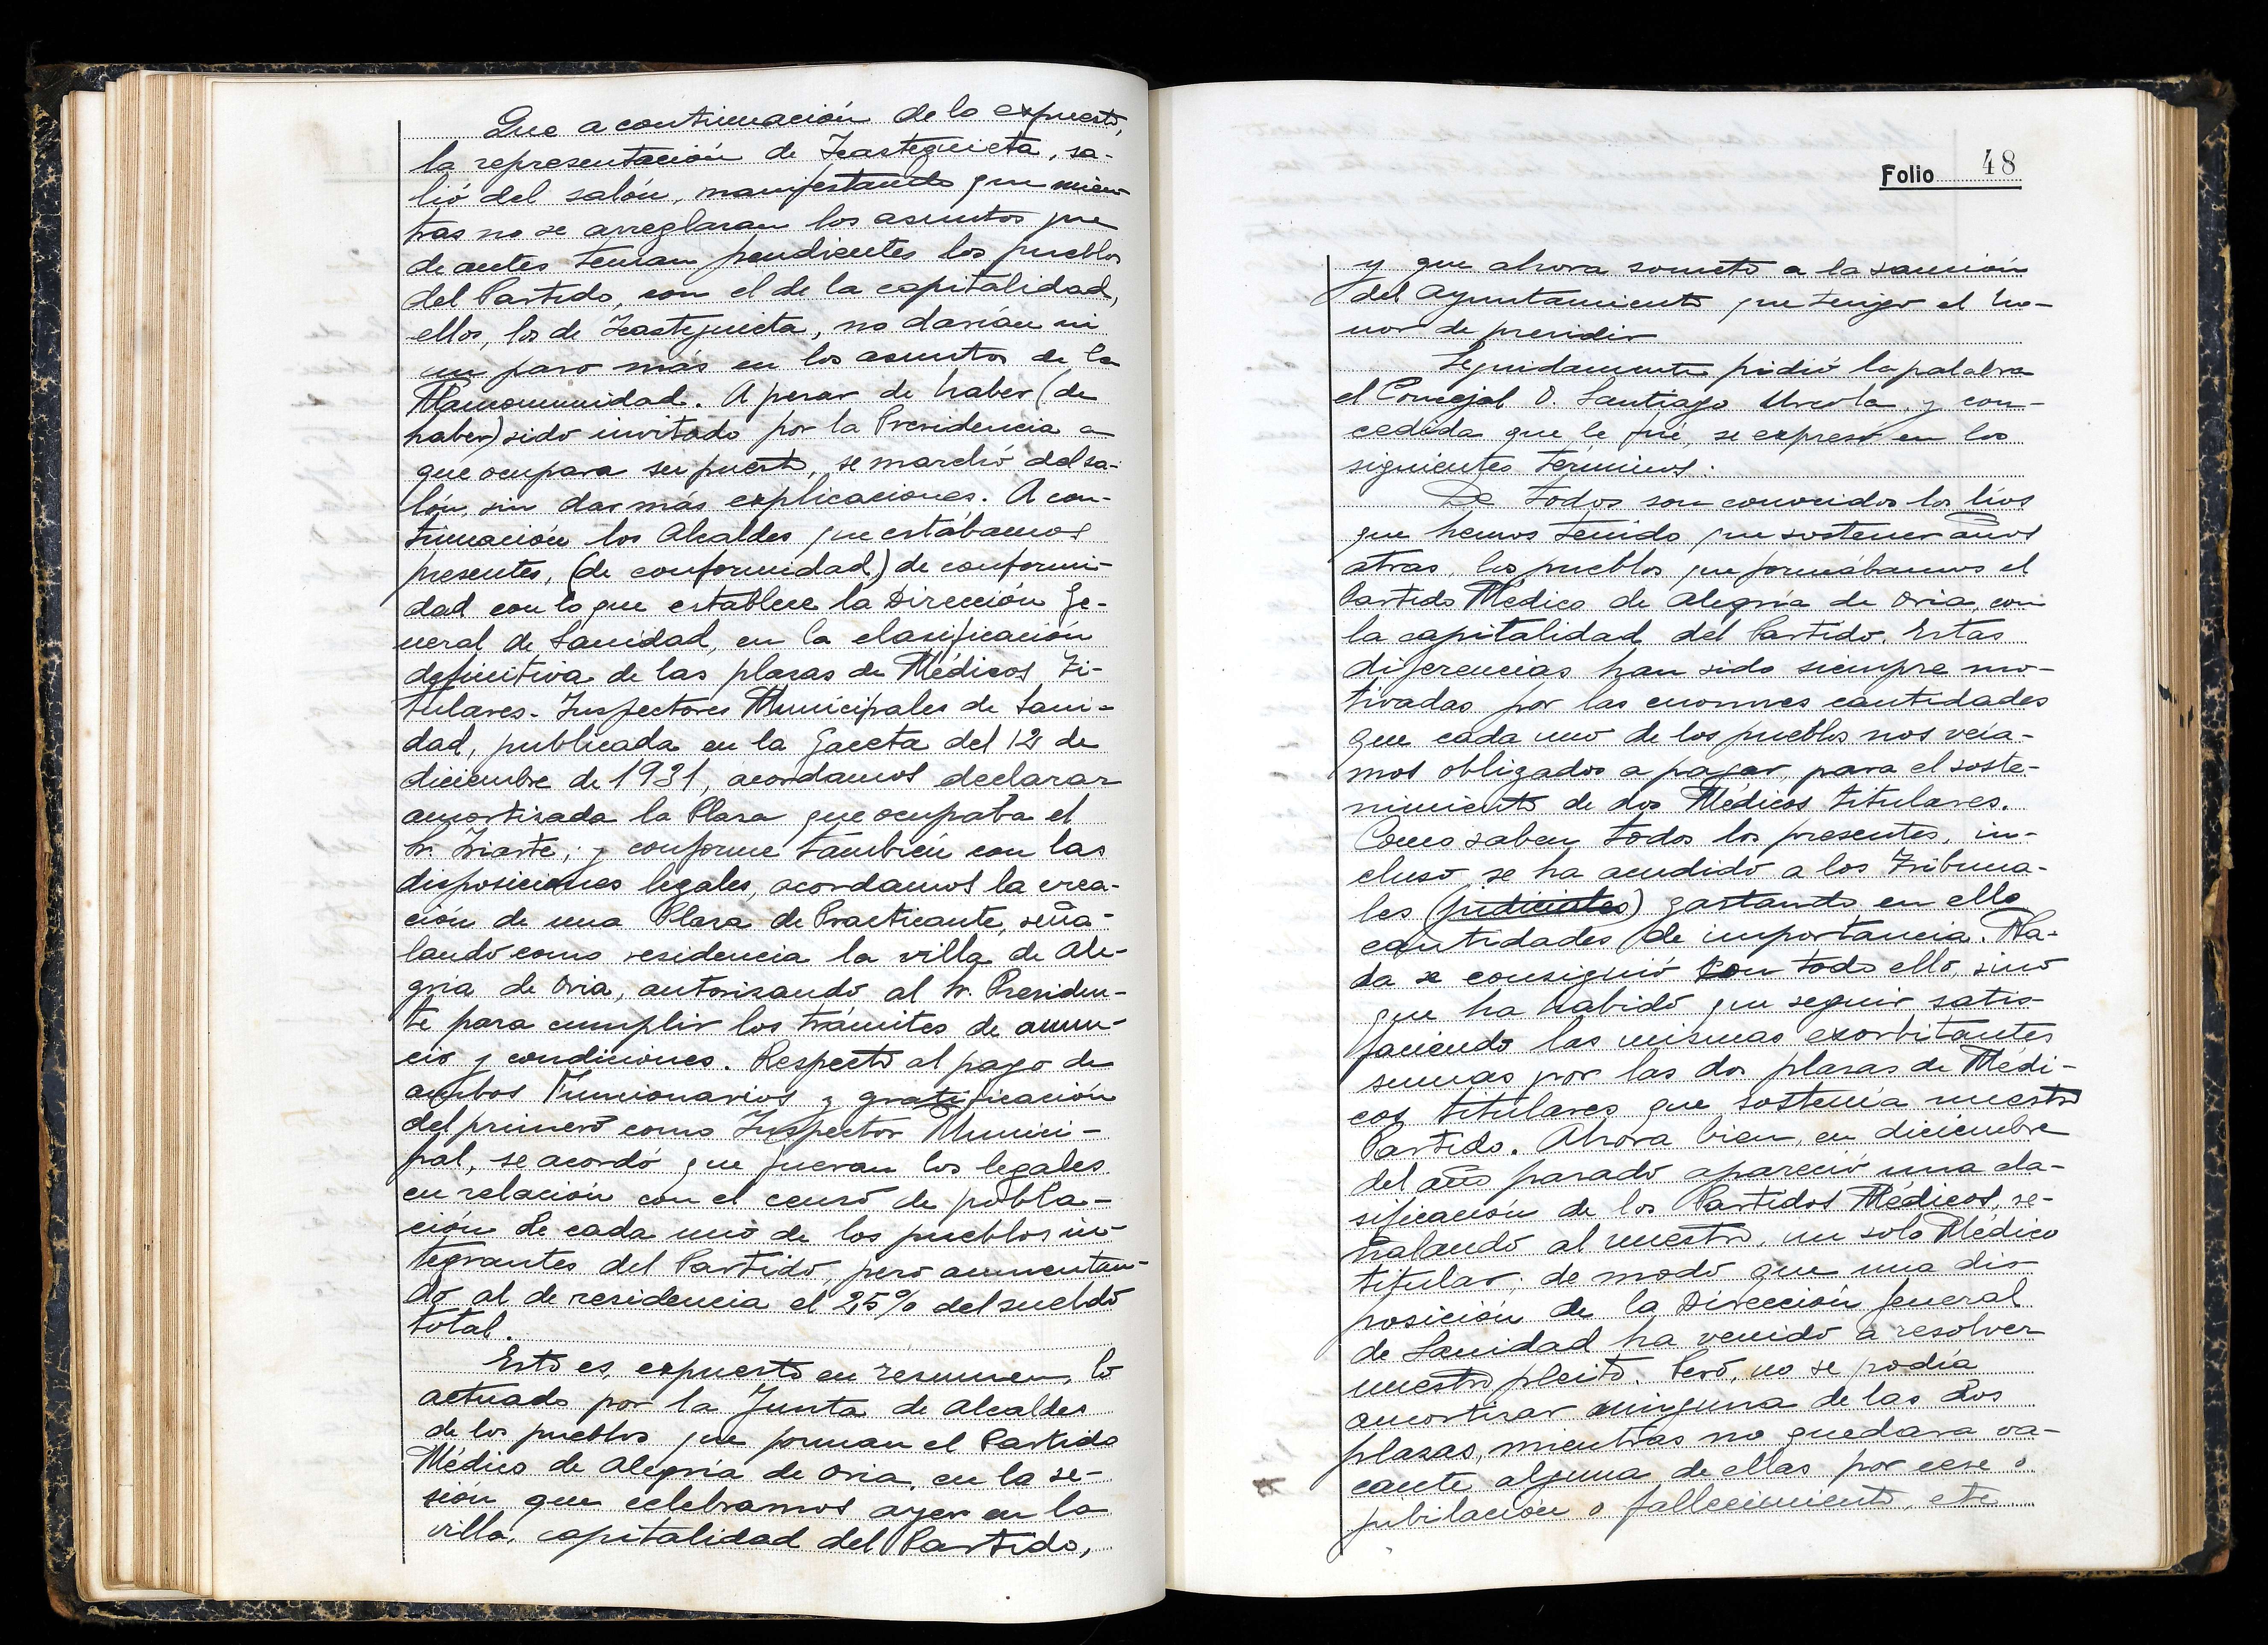 Que a continuación de lo expuesto,
la representación de Icasteguieta, sa-
lió del salón, manifestando que mien-
tras no se arreglaran los asuntos que
de antes tenían pendientes los pueblos
del Partido, con el de la capitalidad,
ellos, los de Icasteguieta, no darían ni
un paso más en los asuntos de la
Mancomunidad. A pesar de haber (de
haber) sido invitado por la Presidencia a
que ocupara su puesto, se marchó del sa-
lón, sin dar más explicaciones. A con-
tinuación los Alcaldes que estábamos
presentes, (de conformidad) de conformi-
dad con lo que establece la Dirección Ge-
neral de Sanidad, en la clasificación
definitiva de las plazas de Médicos Ti-
tulares - Inspectores Municipales de Sani-
dad, publicada en la Gaceta del 12 de
diciembre de 1931, acordamos declarar
amortizada la Plaza que ocupaba el
Sr. Iriarte; y conforme también con las
disposiciones legales, acordamos la crea-
ción de una Plaza de Practicante, seña-
lando como residencia la villa de Ale-
gria de Oria, autorizando al Sr. Presiden-
te para cumplir los trámites de anun-
cio y condiciones. Respecto al pago de
ambos Funcionarios y gratificación
del primero como Inspector Munici-
pal, se acordó que fueran los legales
en relación con el censo de pobla-
ción de cada uno de los pueblos in-
tegrantes del Partido, pero aumentan-
do al de residencia el 25% del sueldo
total.
Esto es, expuesto en resumen, lo
actuado por la Junta de Alcaldes
de los pueblos que forman el Partido
Médico de Alegría de Oria, en la se-
sión que celebramos ayer en la
villa, capitalidad del Partido,
Folio 48
y que ahora someto a la sanción
del Ayuntamiento que tengo el ho-
nor de presidir
Seguidamente pidió la palabra
el Concejal D. Santiago Urcola, y con-
cedida que le fué, se expresó en los
siguientes términos:
De todos son conocidos los líos
que hemos tenido que sostener años
atras, los pueblos que formábamos el
Partido Médico de Alegría de Oria, con
la capitalidad del Partido. Estas
diferencias han sido siempre mo-
tivadas por las enormes cantidades
que cada uno de los pueblos nos veía-
mos obligados a pagar, para el soste-
nimiento de dos Médicos titulares.
Como saben todos los presentes, in-
cluso se ha acudido a los Tribuna-
les (judiciales) gastando en ello
cantidades de importancia. Na-
da se consiguió con todo ello, sino
que ha habido que seguir satis-
faciendo las mismas exorbitantes
sumas por las dos plazas de Médi-
cos titulares que sostenía nuestro
Partido. Ahora bien, en diciembre
del año pasado apareció una cla-
sificación de los Partidos Médicos, se-
ñalando al nuestro, un solo Médico
titular; de modo que una dis-
posición de la Dirección General
de Sanidad ha venido a resolver
nuestro pleito. Pero, no se podía
amortizar ninguna de las dos
plazas, mientras no quedara va-
cante alguna de ellas por cese o
jubilación o fallecimiento, etc